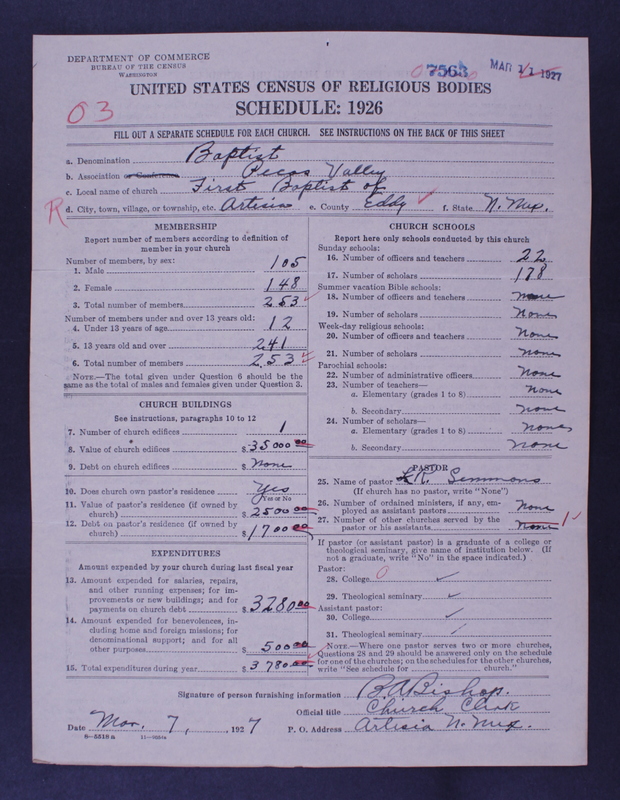 DEPARTMENT OF COMMERCE
BUREAU OF THE CENSUS
WASHINGTON
7563
MAR 11 1927
UNITED STATES CENSUS OF RELIGIOUS BODIES
SCHEDULE: 1926
03
FILL OUT A SEPARATE SCHEDULE FOR EACH CHURCH. SEE INSTRUCTIONS ON THE BACK OF THIS SHEET
a. Denomination Baptist
b. Association or Conference Pecos Valley
c. Local name of church First Baptist of
R d. City, town, village, or township, etc. Artisia e. County Eddy f. State N. Mex.
MEMBERSHIP
Report number of members according to definition of
member in your church
Number of members, by sex:
1. Male 105
2. Female 148
3. Total number of members 253
Number of members under and over 13 years old:
4. Under 13 years of age 12
5. 13 years old and over 241
6. Total number of members 253
NOTE.—The total given under Question 6 should be the
same as the total of males and females given under Question 3.
CHURCH BUILDINGS
See instructions, paragraphs 10 to 12
7. Number of church edifices 1
8. Value of church edifices $35000 00
9. Debt on church edifices $None
10. Does church own pastor's residence Yes
Yes or No
11. Value of pastor's residence (if owned by
church) $2500 00
12. Debt on pastor's residence (if owned by
church) $1700 00
EXPENDITURES
Amount expended by your church during last fiscal year
13. Amount expended for salaries, repairs,
and other running expenses; for im-
provements or new buildings; and for
payments on church debt $3280 00
14. Amount expended for benevolences, in-
cluding home and foreign missions; for
denominational support; and for all
other purposes $500 00
15. Total expenditures during year $3780 00
CHURCH SCHOOLS
Report here only schools conducted by this church
Sunday schools:
16. Number of officers and teachers 22
17. Number of scholars 178
Summer vacation Bible schools:
18. Number of officers and teachers None
19. Number of scholars None
Week-day religious schools:
20. Number of officers and teachers None
21. Number of scholars None
Parochial schools:
22. Number of administrative officers None
23. Number of teachers—
a. Elementary (grades 1 to 8) None
b. Secondary None
24. Number of scholars—
a. Elementary (grades 1 to 8) None
b. Secondary None
PASTOR
25. Name of pastor R. Semmons
(If church has no pastor, write "None")
26. Number of ordained ministers, if any, em-
ployed as assistant pastors None
27. Number of other churches served by the
pastor or his assistants None 1
If pastor (or assistant pastor) is a graduate of a college or
theological seminary, give name of institution below. (If
not a graduate, write "No" in the space indicated.)
Pastor:
28. College 0
29. Theological seminary
Assistant pastor:
30. College
31. Theological seminary
NOTE.—Where one pastor serves two or more churches,
Questions 28 and 29 should be answered only on the schedule
for one of the churches; on the schedules for the other churches,
write "See schedule for church."
Signature of person furnishing information B. A Bishop.
Official title Church Clerk
Date Mar. 7, , 1927 P. O. Address Artisia N. Mex.